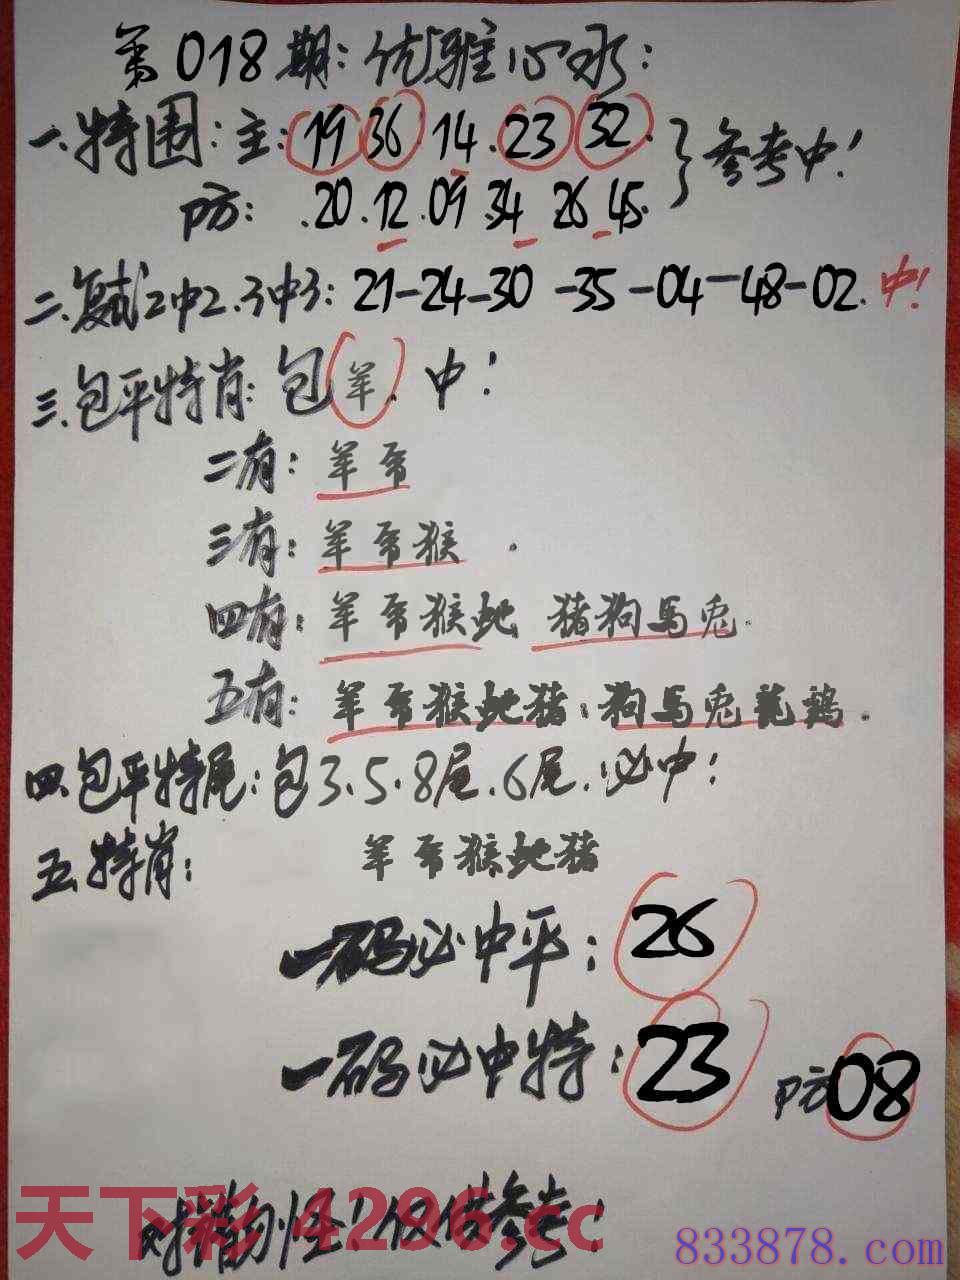 第018期:优雅心水:
一.特围:主:19 36.14.23 32.
参考中!
防:.20.12.09.34 26 45.
二.复试2中2.3中3:21-24-30-35-04-48-02.中!
三.包平特肖:包羊.中!
二有:羊帝
三有:羊帝猴.
四有:羊帝猴蛇 猪狗马兔.
五有:羊帝猴蛇猪:狗马兔龍鷄.
四.包平特尾:包3.5.8尾.6尾.必中!
五.特肖:羊帝猴蛇猪
一码必中平:26
一码必中特:23 防08
对错勿怪!仅供参考!
天下彩 4296.cc
833878.com